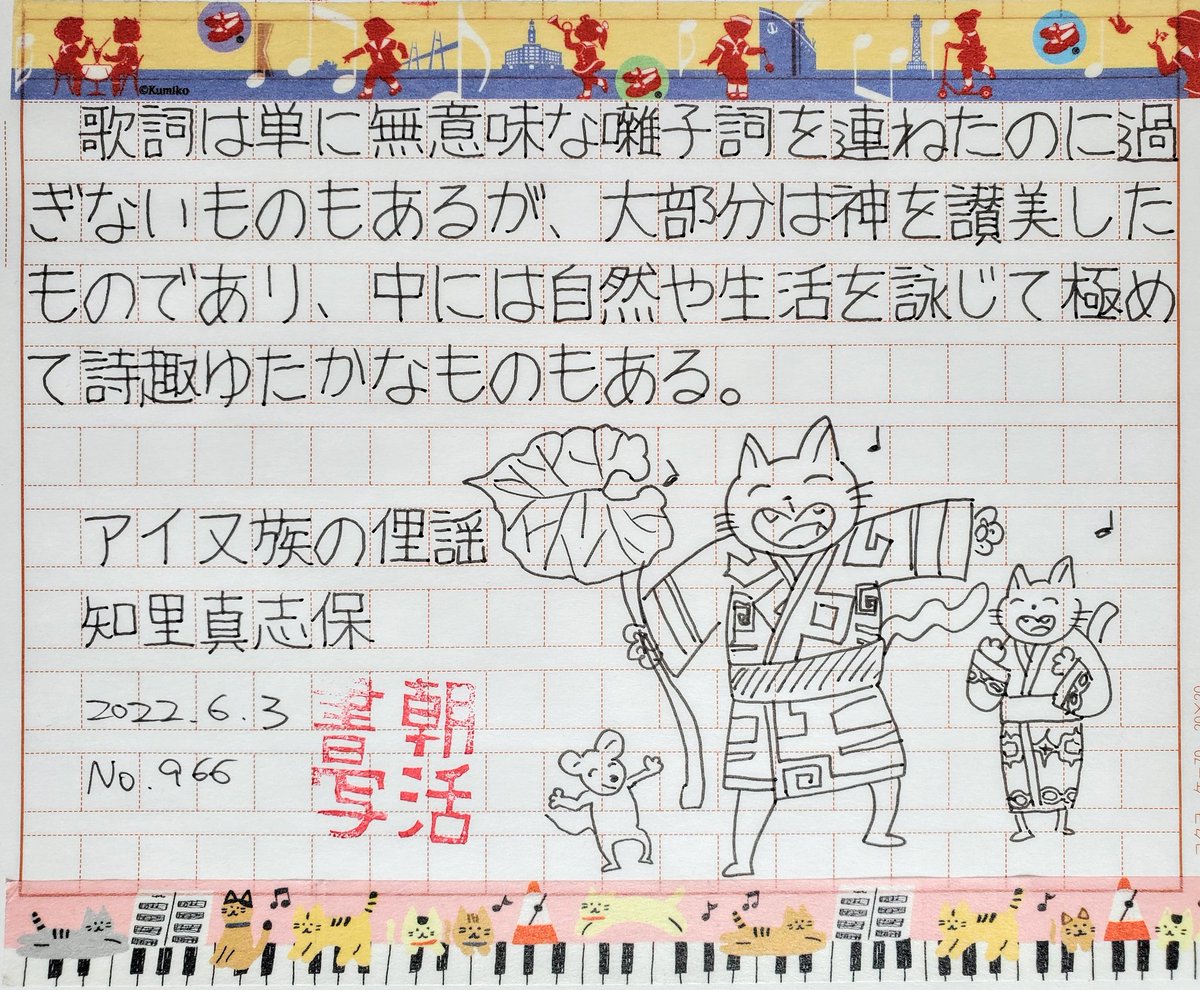 ©Kumiko
歌詞は単に無意味な囃子詞を連ねたのに過
ぎないものもあるが、大部分は神を讃美した
ものであり、中には自然や生活を詠じて極め
て詩趣ゆたかなものもある。
アイヌ族の俚謡
知里真志保
2022.6.3
No.966
朝活
書写